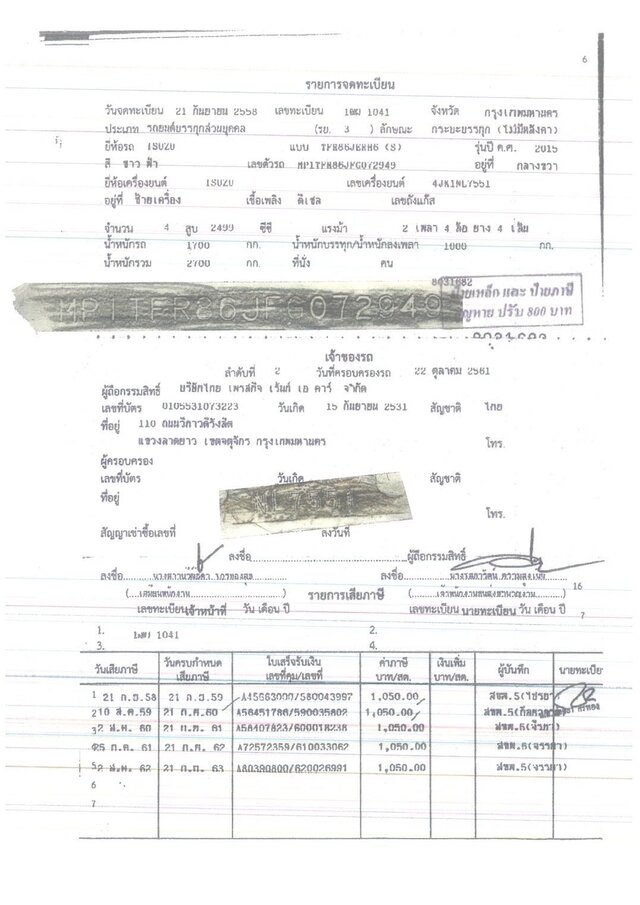 6
รายการจดทะเบียน
วันจดทะเบียน 21 กันยายน 2558 เลขทะเบียน 1041 จังหวัด กรุงเทพมหานคร
ประเภท รถยนต์บรรทุกส่วนบุคคล (รย. 3 ) ลักษณะ กระบะบรรทุก (ไม่มีหลังคา)
ยี่ห้อรถ ISUZU แบบ TFR86JERH6 (S) รุ่นปี ค.ศ. 2015
สี ขาว ฟ้า เลขตัวรถ MP1TFR86JFG072949 อยู่ที่ กลางขวา
ยี่ห้อเครื่องยนต์ ISUZU เลขเครื่องยนต์
อยู่ที่ ซ้ายเครื่อง เชื้อเพลิง ดีเซล เลขถังแก๊ส
จำนวน 4 สูบ 2499 ซีซี แรงม้า 2 เพลา 4 ล้อ ยาง 4 เส้น
น้ำหนักรถ 1700 กก. น้ำหนักบรรทุก/น้ำหนักลงเพลา 1000 กก.
น้ำหนักรวม 2700 กก. ที่นั่ง คน
8031682
ป้ายเหล็ก และ ป้ายภาษี
สูญหาย ปรับ 800 บาท
MP1TFR86JFG072949
เจ้าของรถ
ลำดับที่ 2 วันที่ครอบครองรถ 22 ตุลาคม 2561
ผู้ถือกรรมสิทธิ์ บริษัทไทย เพรสทีจ เร้นท์ เอ คาร์ จำกัด
เลขที่บัตร 0105531073223 วันเกิด 15 กันยายน 2531 สัญชาติ ไทย
ที่อยู่ 110 ถนนวิภาวดีรังสิต
แขวงลาดยาว เขตจตุจักร กรุงเทพมหานคร
โทร.
ผู้ครอบครอง
เลขที่บัตร วันเกิด สัญชาติ
ที่อยู่
โทร.
สัญญาเช่าซื้อเลขที่ ลงวันที่
ลงชื่อ ผู้ถือกรรมสิทธิ์
ลงชื่อ ลงชื่อ 16
รายการเสียภาษี
เลขทะเบียน เจ้าหน้าที่ วัน เดือน ปี เลขทะเบียน นายทะเบียน วัน เดือน ปี 7
1. 1041 2.
3. 4.
วันเสียภาษี วันครบกำหนดเสียภาษี ใบเสร็จรับเงิน เลขที่คุม/เลขที่ ค่าภาษี บาท/สต. เงินเพิ่ม บาท/สต. ผู้บันทึก นายทะเบีย
1 21 ก.ย.58 21 ก.ย.59 A45663000/580043997 1,050.00
2 10 ส.ค.59 21 ก.ย.60 A56451786/590035802 1,050.00
3 2 ส.ค. 60 21 ก.ย. 61 A58407823/600018238 1,050.00
4 25 ก.ค. 61 21 ก.ย. 62 A72572359/610033062 1,050.00
5 2 ส.ค. 62 21 ก.ย. 63 A80390800/620026991 1,050.00
6
7